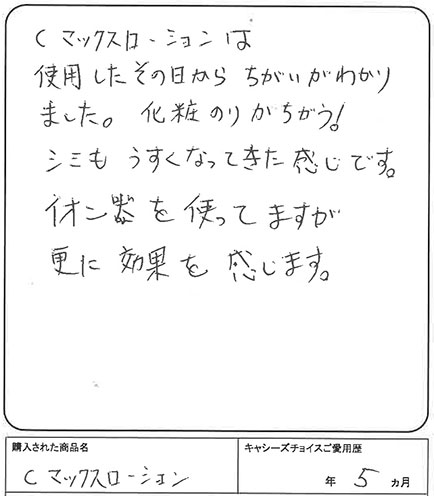 C マックスローションは
使用したその日から ちがいがわかり
ました。 化粧のりがちがう!
シミも うすくなってきた感じです。
イオン器を使ってますが
更に 効果を 感じます。
購入された商品名
キャシーズチョイスご愛用歴
C マックスローション
年 5 ヵ月